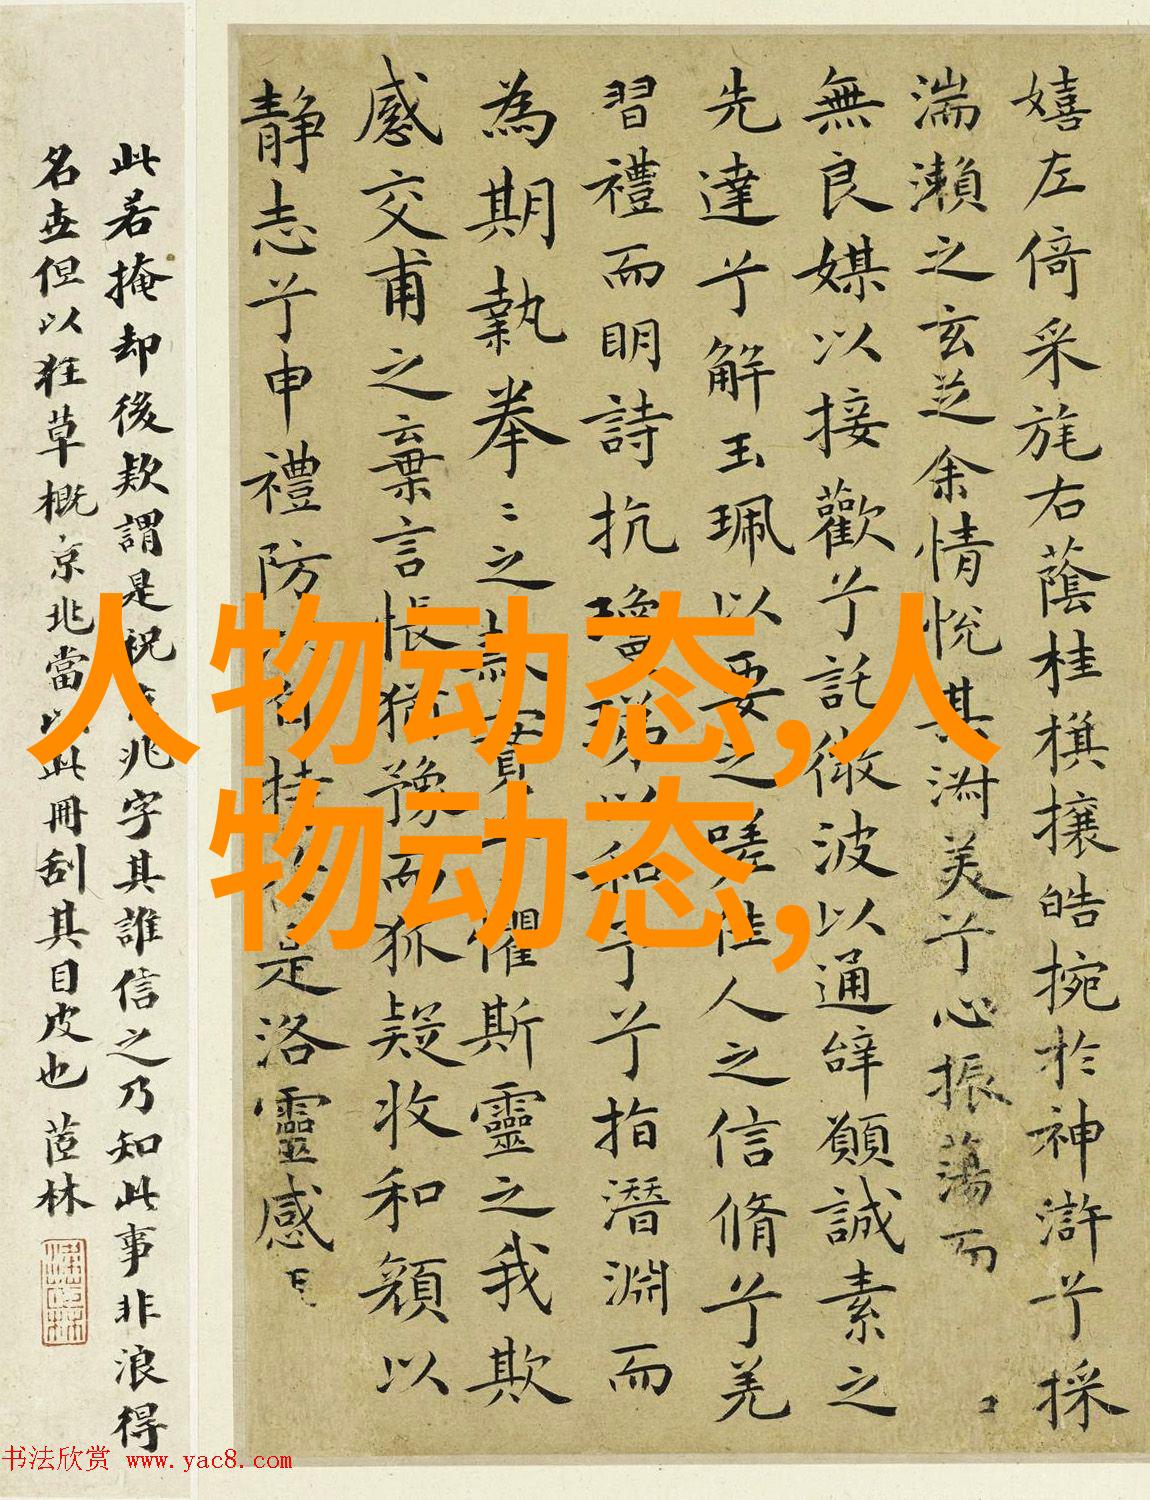 嬉左倚采旄右蔭桂旗攘皓捥於神滸兮採
湍瀨之玄芝余情悅其淑美兮心振蕩而
無良媒以接歡兮託微波以通辝願誠素之
先達兮解玉珮以要之嗟佳人之信脩兮羌
習禮而明詩抗瓊珶以和予兮指潛淵而
為期執拳〻之款實兮懼斯靈之我欺
感交甫之棄言悵猶豫而狐疑收和顏以
靜志兮申禮防以自持於是洛靈感
此若掩却後款謂是祝京兆字其誰信之乃知此事非浪得
名世但以狂草概京兆當以此冊刮其目皮也 茝林
人物动态,人
物动态,
书法欣赏 www.yac8.com